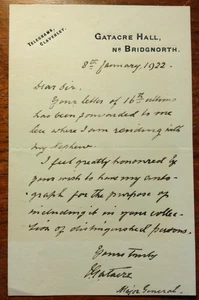 TELEGRAMS,
CLAVERLEY.
GATACRE HALL,
NR BRIDGNORTH.
8th January, 1922.
Dear Sir.
Your letter of 16th ultimo
has been forwarded to me
here where I am residing with
my Nephew.
I feel greatly honoured by
your wish to have my auto-
graph for the purpose of
including it in your collec-
tion of distinguished persons.
Yours truly
Gatacre
Major General.